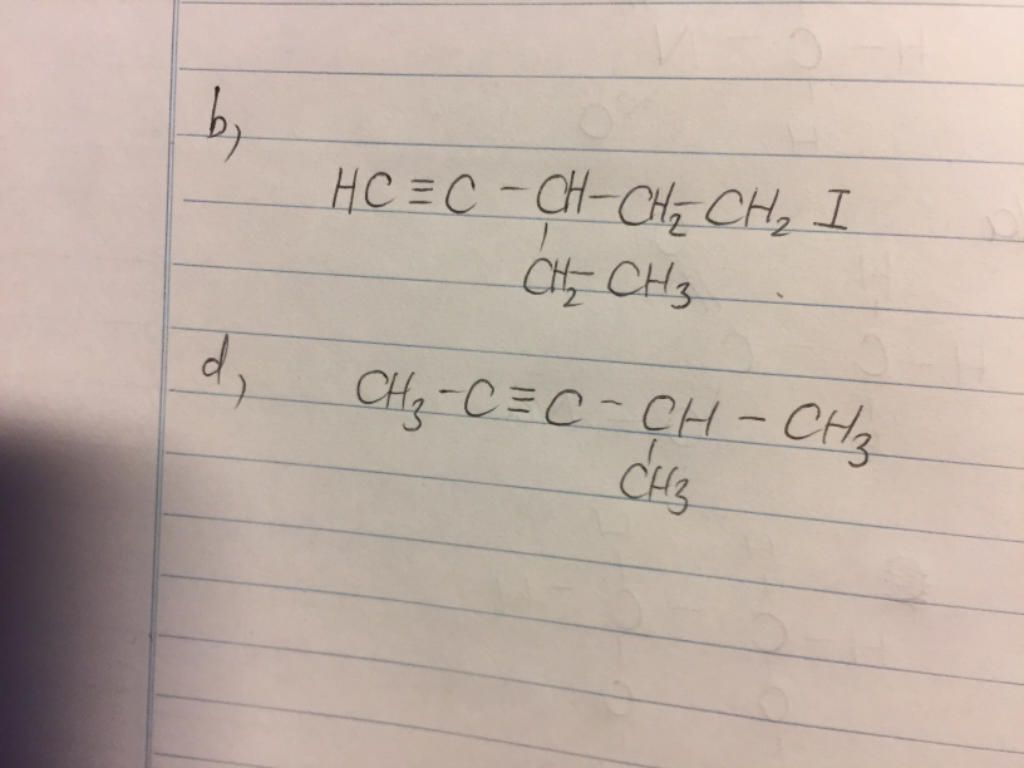 b,
HC≡C-CH-CH₂-CH₂ I
CH₂-CH₃
d,
CH₃-C≡C-CH-CH₃
CH₃